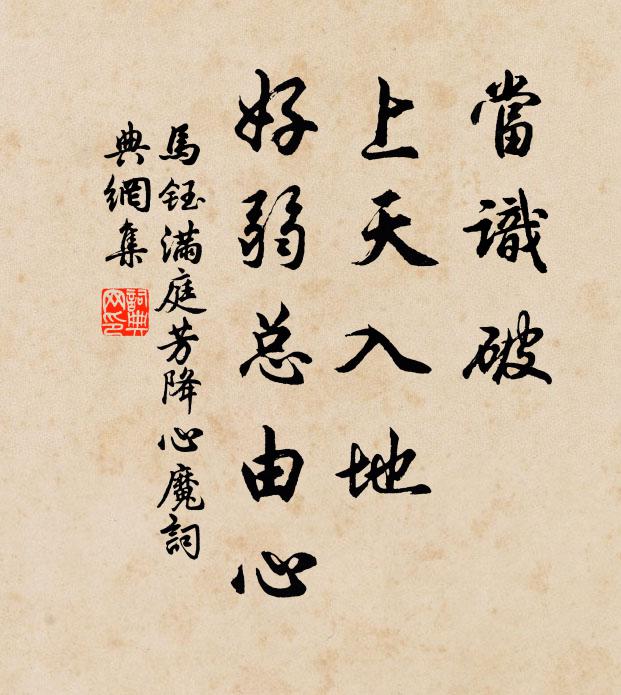 當識破
上天入地
好弱总由心
馬鈺滿庭芳降心魔詞
典網集
詞典
网印